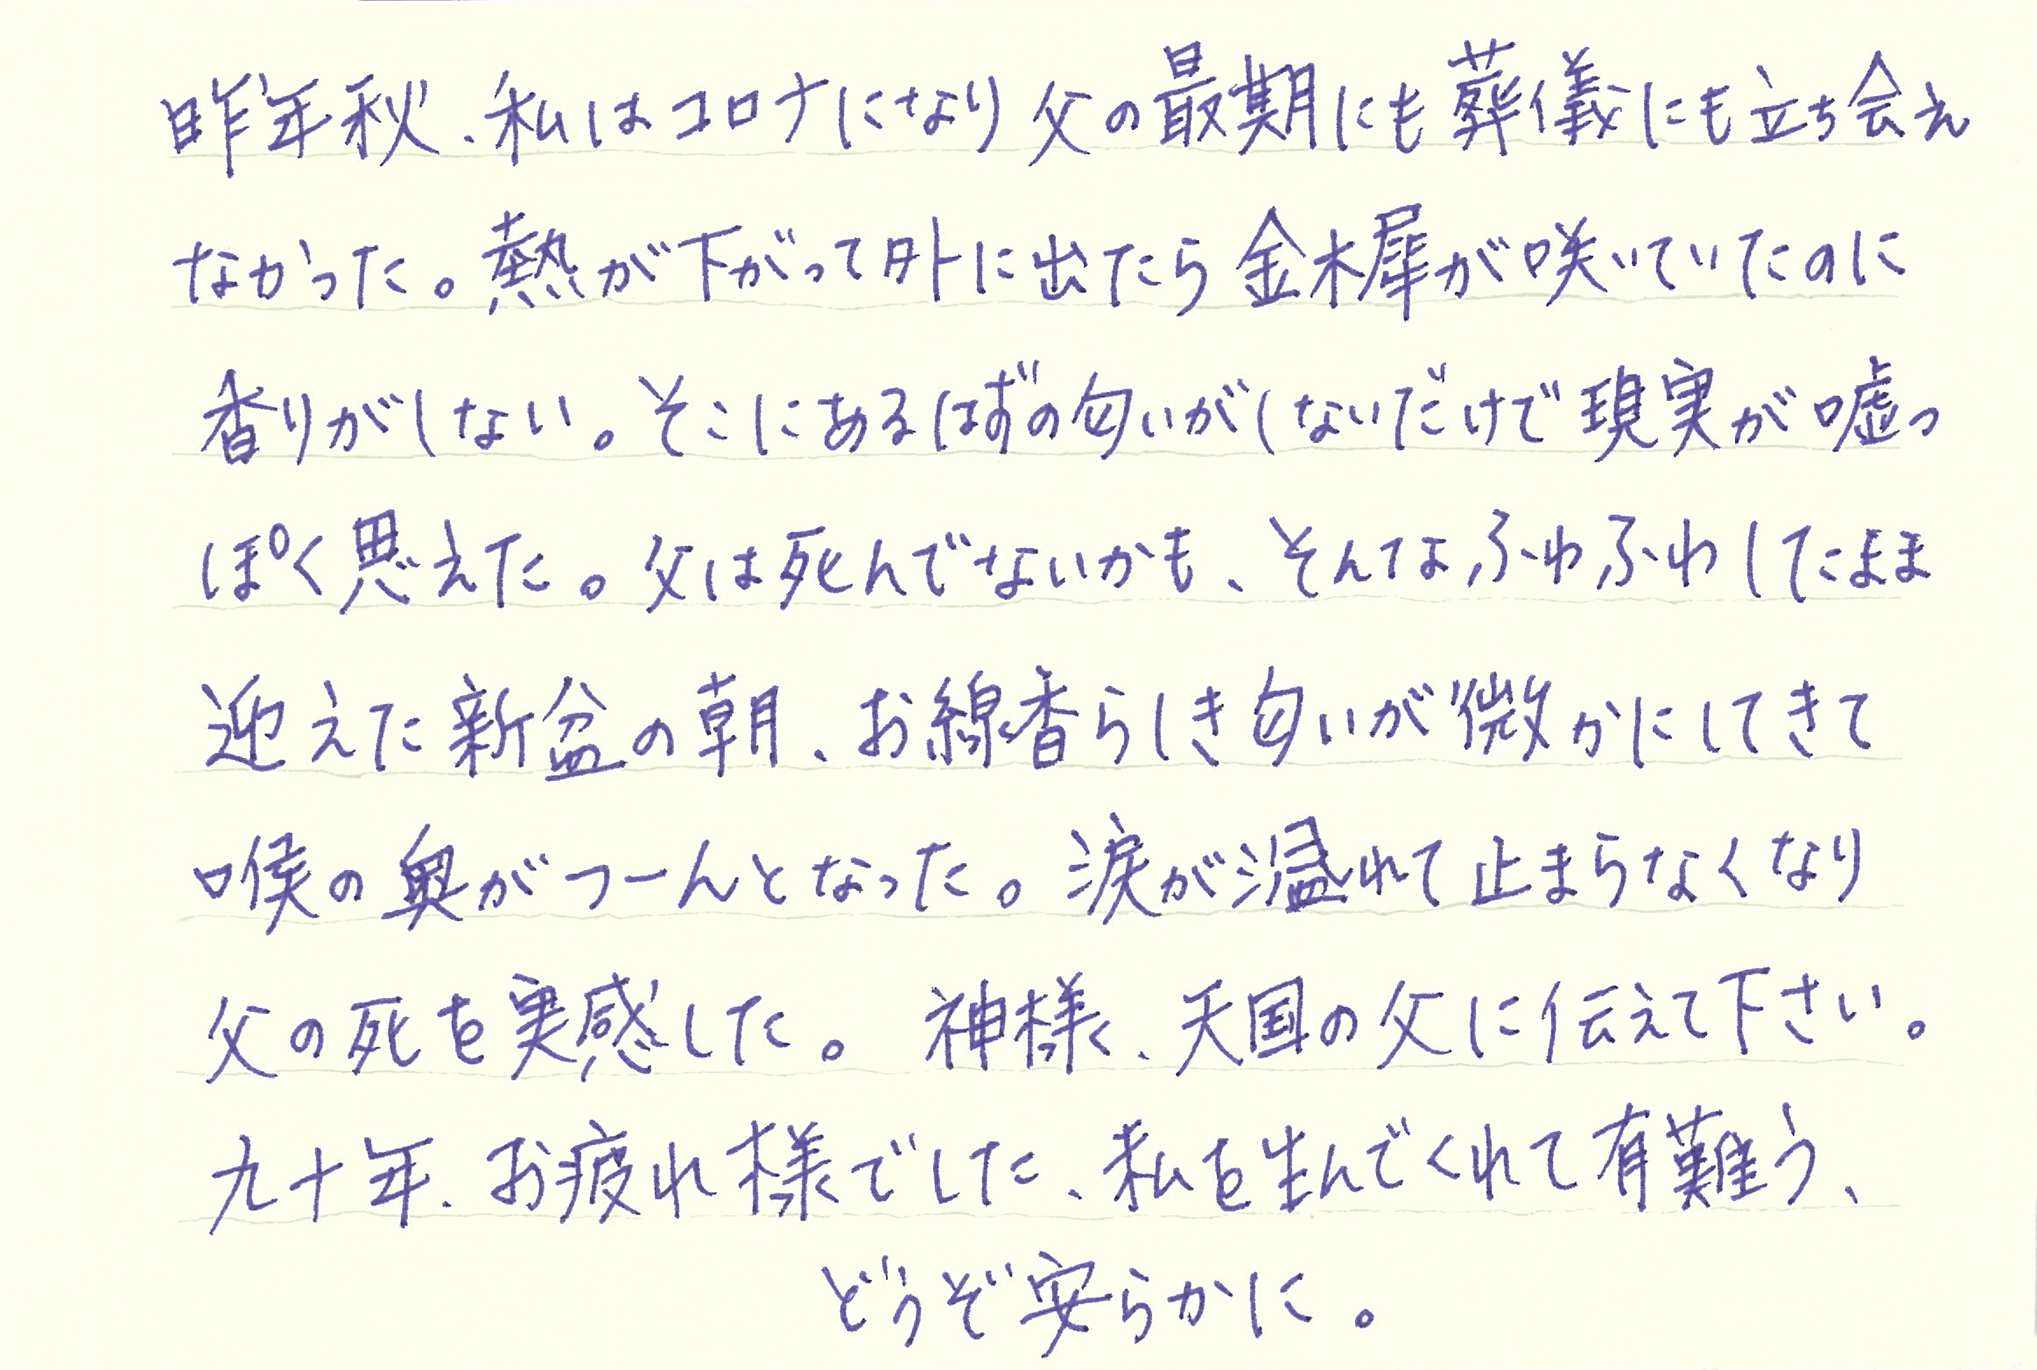 昨年秋、私はコロナになり父の最期にも葬儀にも立ち会え
なかった。熱が下がって外に出たら金木犀が咲いていたのに
香りがしない。そこにあるはずの匂いがしないだけで現実が嘘っ
ぽく思えた。父は死んでないかも、そんなふわふわしたまま
迎えた新盆の朝、お線香らしき匂いが微かにしてきて
喉の奥がつーんとなった。涙が溢れて止まらなくなり
父の死を実感した。神様、天国の父に伝えて下さい。
九十年、お疲れ様でした、私を生んでくれて有難う、
どうぞ安らかに。